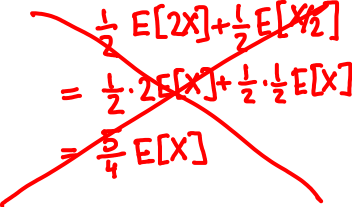 1/2 E[2X]+1/2 E[X/2]
= 1/2 · 2E[X]+1/2 · 1/2 E[X]
= 5/4 E[X]